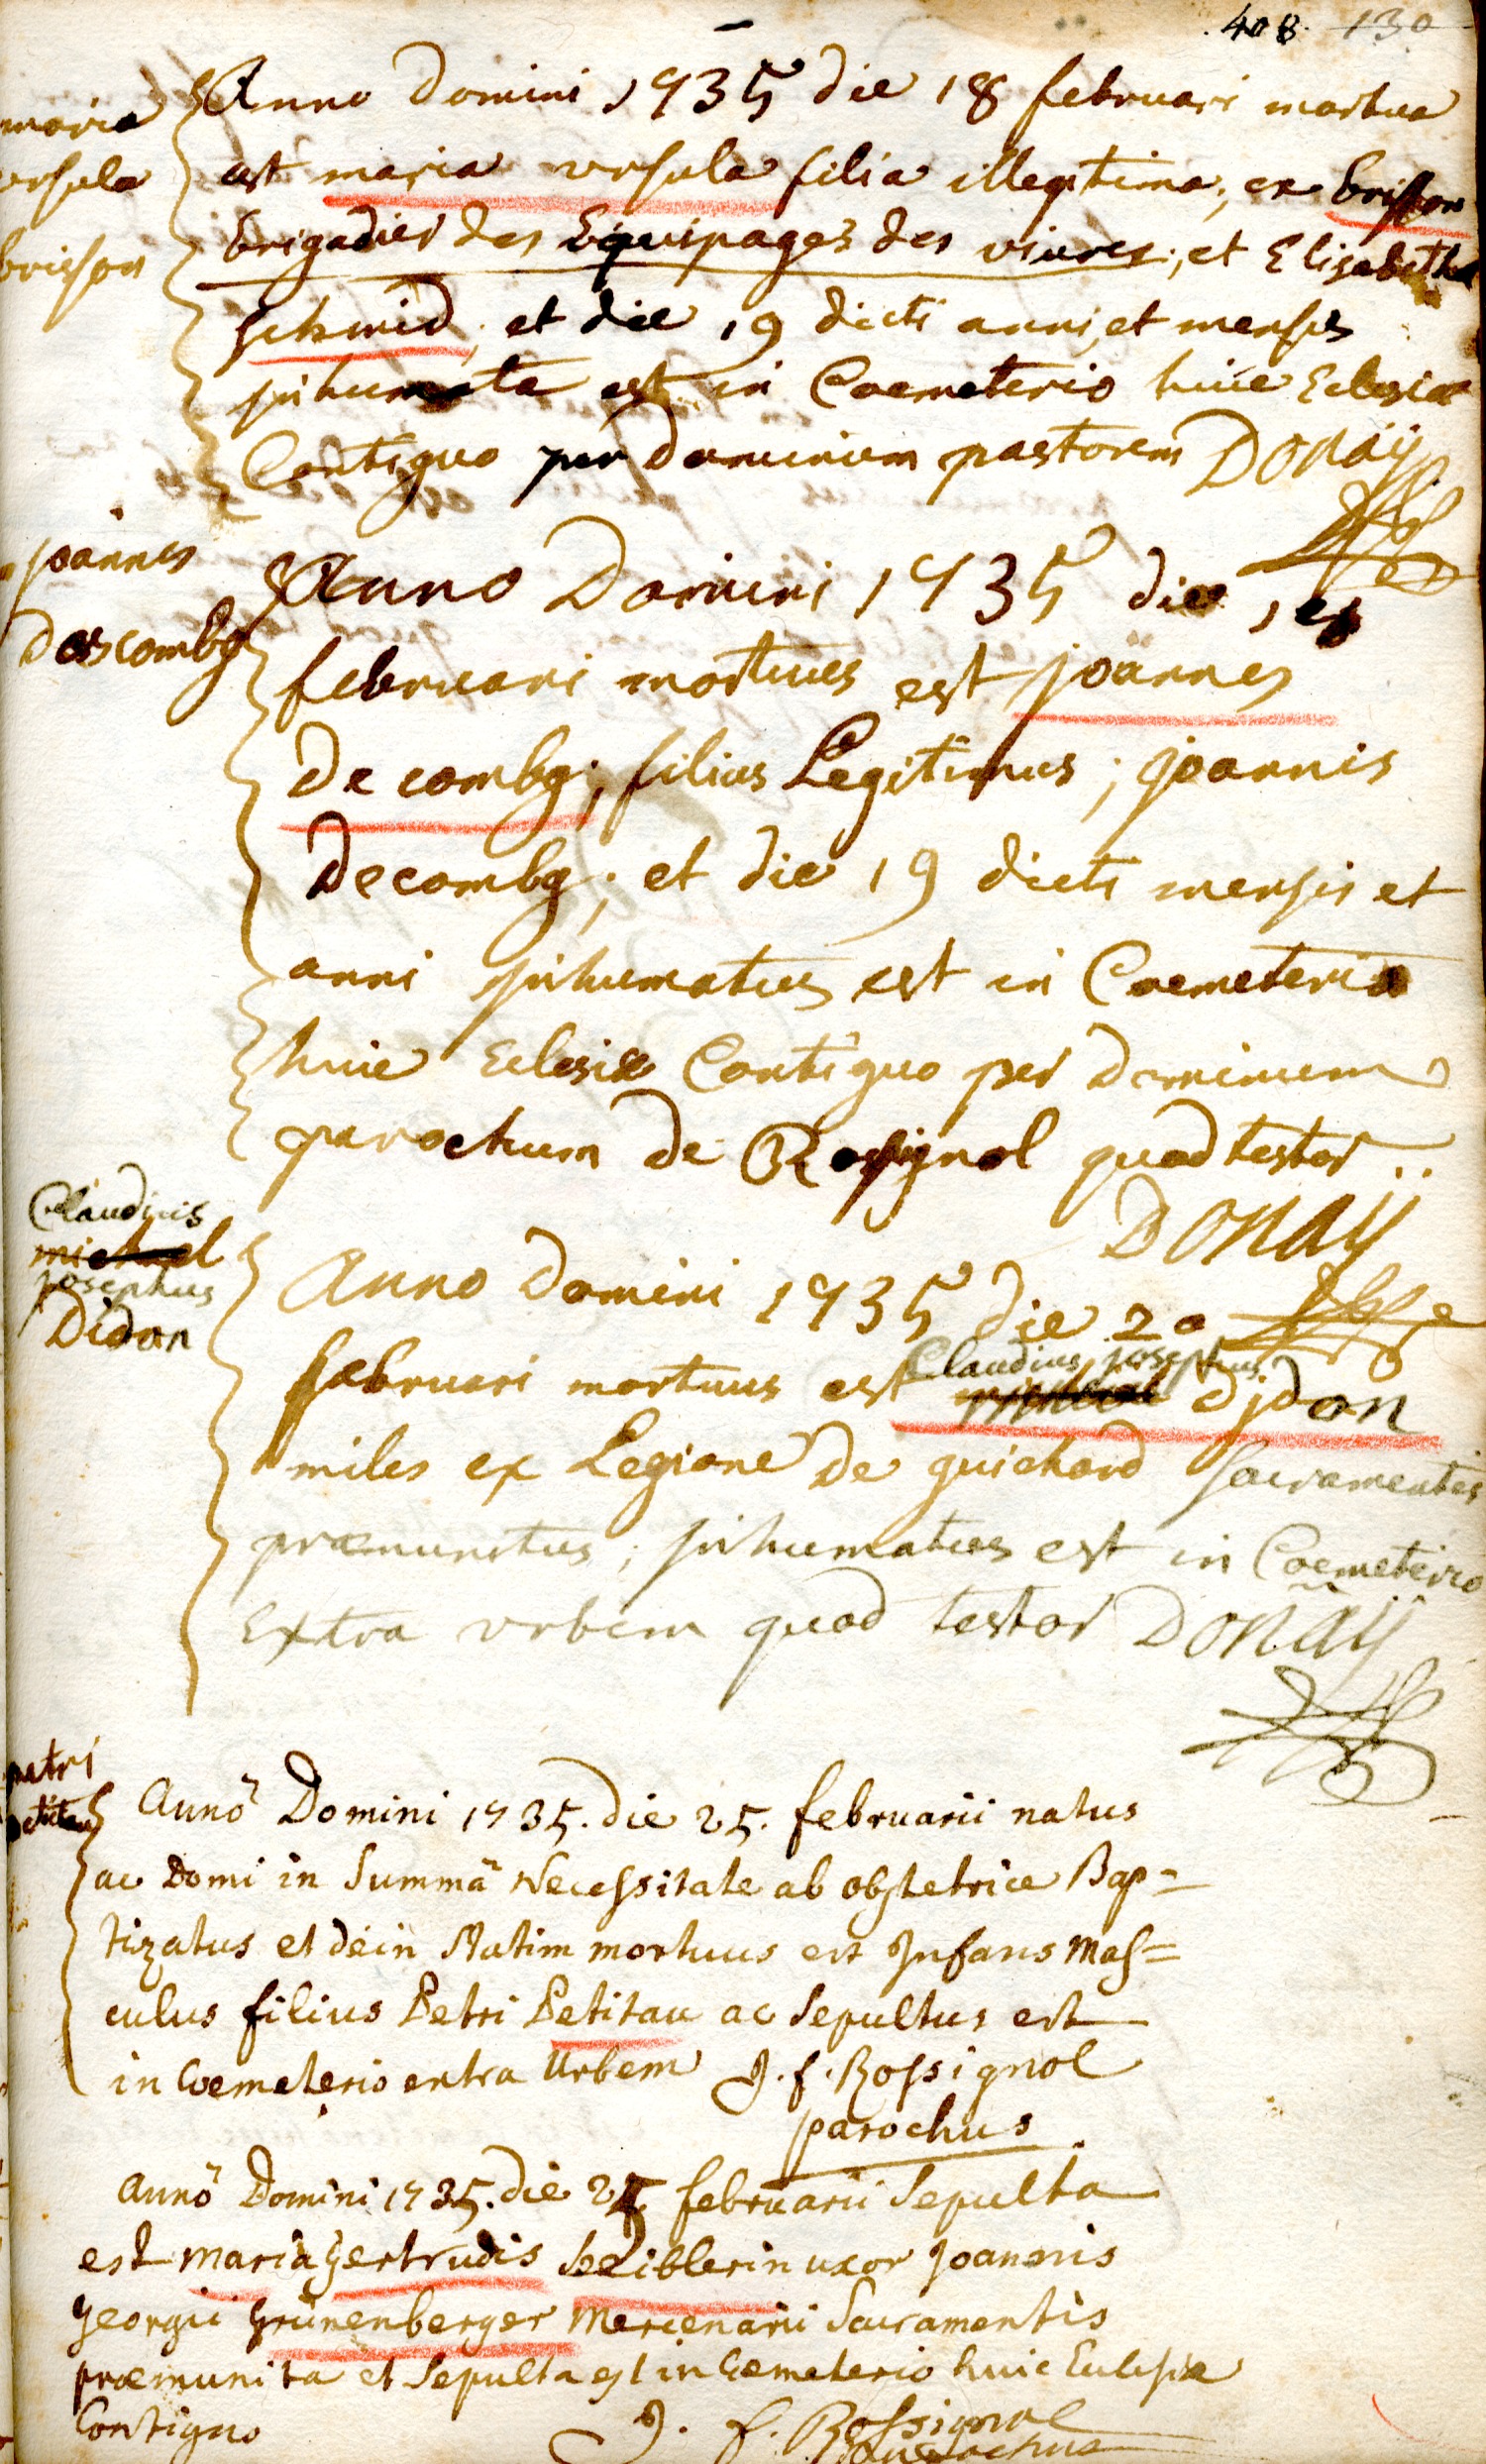 408. 130
maria
ursula
brisson
Anno Domini 1735 die 18 februari mortua
est maria ursula filia illegitima; ex brisson
brigadier des Equipages des vivres; et Elisabetha
schmid; et die 19 dicti anni, et mensis
inhumata est in Coemeterio huic Eclesiæ
Contiguo per dominum pastorem DONAÿ
joannes
Descombg
Anno Domini 1735 die
februari mortuus est joannes
De combg; filius Legitimus; joannis
Decombg; et die 19 dicti mensis et
anni inhumatus est in Coemeterio
huic Eclesiæ Contiguo per dominum
parochum de Rossignol quod testor..
DONAÿ
Claudius
michael
josephus
Didon
Anno Domini 1735 die 20
Claudius josephus
februari mortuus est michael djdon
miles ex Legione de guichard sacramentis
præmunitus; inhumatus est in Coemeterio
Extra urbem quod testor DONAÿ
petri
petitau
Annô Domini 1735. die 25. februarii natus
ac Domi in Summâ Necessitate ab obstetrice Bap=
tizatus et dein statim mortuus est Infans Mas=
culus filius Petri Petitau ac Sepultus est
in Coemeterio extra Urbem J. f. Rossignol
parochus
Annô Domini 1735. die 25 februarii Sepulta
est Maria Gertrudis Seiblerin uxor Joannis
Georgii Grünenberger Mercenarii Sacramentis
præmunita et Sepulta est in Coemeterio huic Eclesiæ
Contiguo J. f. Rossignol
parochus